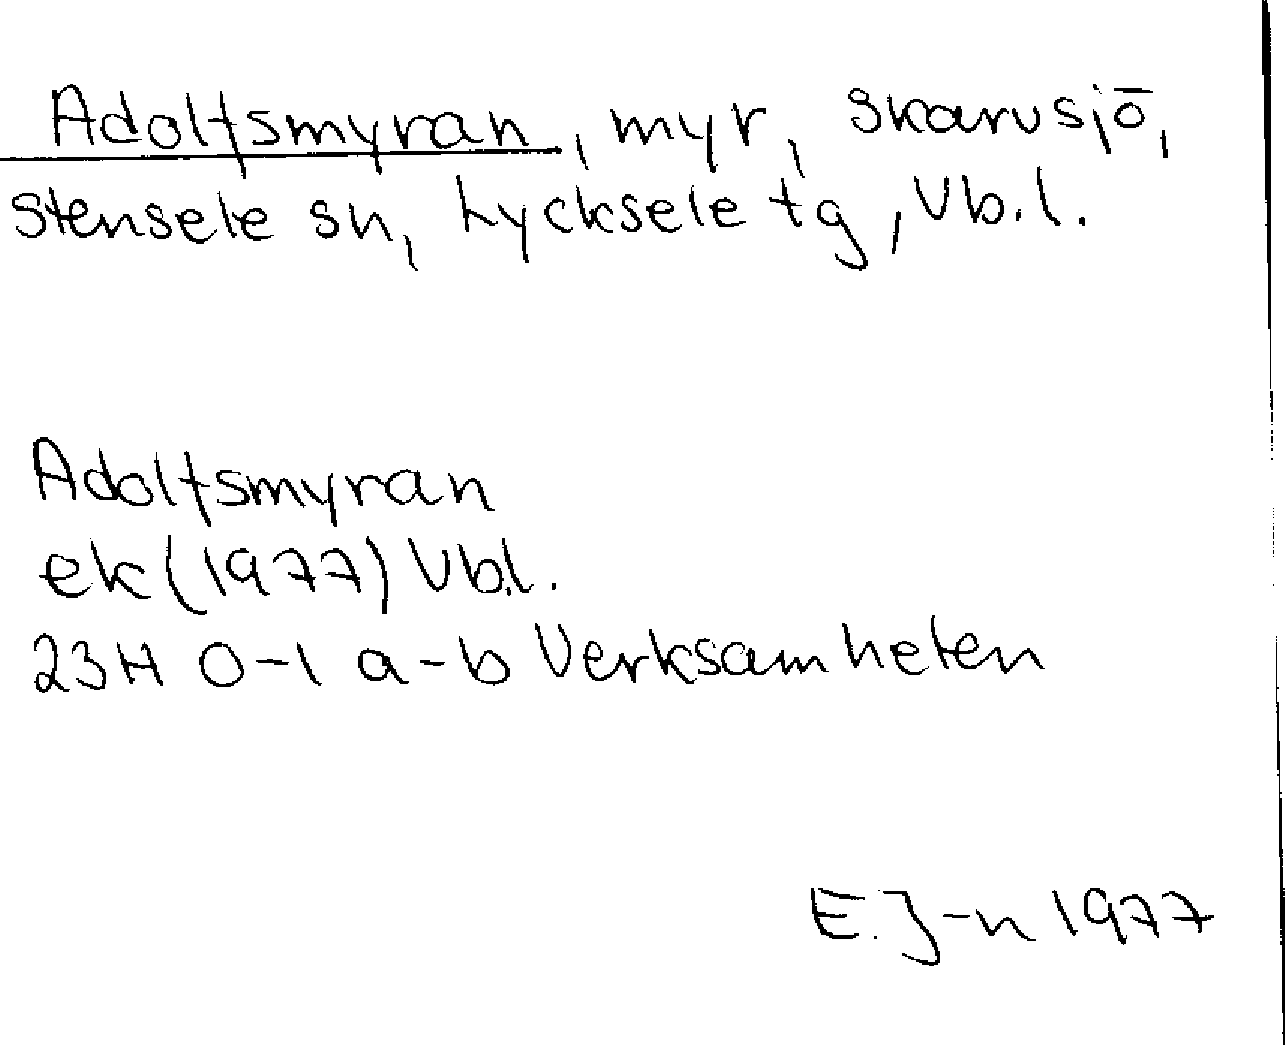 Adolfsmyran, myr, Skarvsjö,
Stensele sn, Lycksele tg, Vb.l.
Adolfsmyran
ek (1977) Vb.l.
23H 0-1 a-b Verksamheten
E.J-n 1977